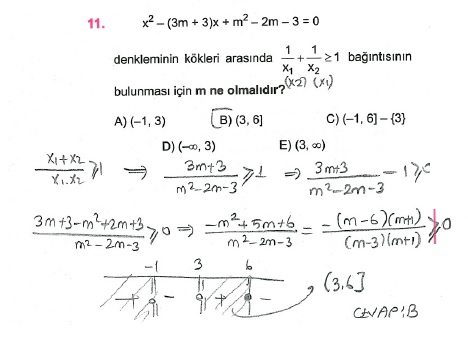 11. x² – (3m + 3)x + m² – 2m – 3 = 0
denkleminin kökleri arasında 1/x₁ + 1/x₂ ≥ 1 bağıntısının
(x2) (x1)
bulunması için m ne olmalıdır?
A) (–1, 3) B) (3, 6] C) (–1, 6] – {3}
D) (–∞, 3) E) (3, ∞)
x₁+x₂/x₁.x₂ ≥ 1 ⇒ 3m+3/m²-2m-3 ≥ 1 ⇒ 3m+3/m²-2m-3 - 1 ≥ 0
3m+3-m²+2m+3/m²-2m-3 ≥ 0 ⇒ -m²+5m+6/m²-2m-3 = -(m-6)(m+1)/(m-3)(m+1) ≥ 0
-1 3 6
+ - + - (3,6]
CEVAP:B